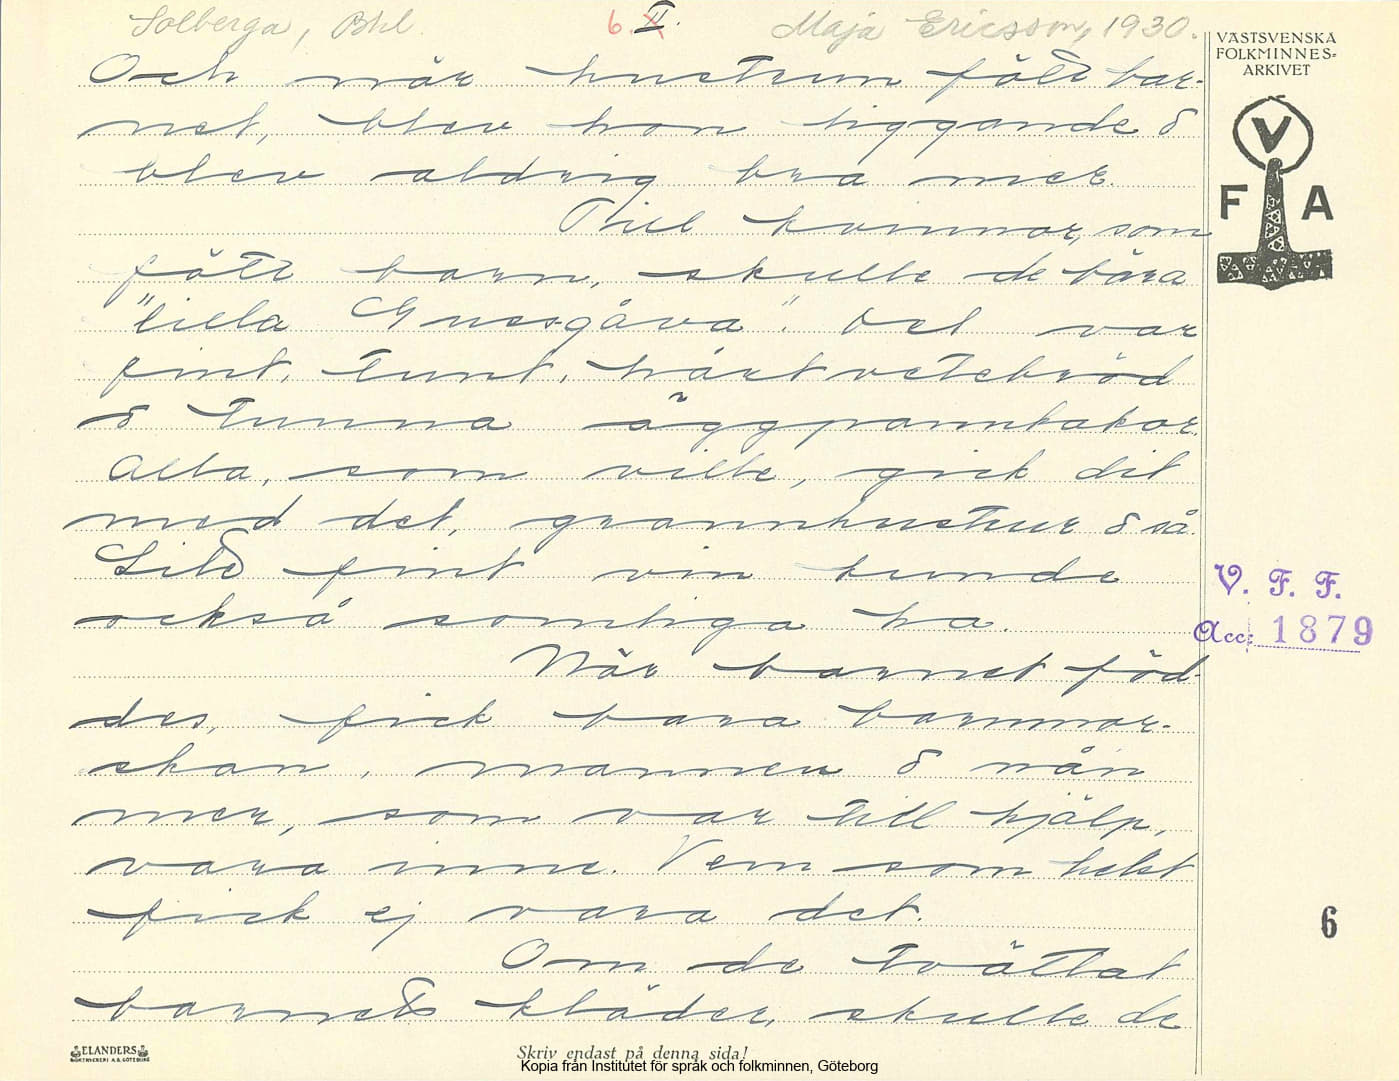 Solberga, Bhl. 6. II. Maja Ericsson, 1930.
VÄSTSVENSKA
FOLKMINNES-
ARKIVET
V
F A
Och när hustrun fått bar-
net, blev hon liggande &
blev aldrig bra mer.
Till kvinnor, som
fått barn, skulle de bära
"lilla Gucsgåva". Det var
fint, tunt, hårt vetebröd
& tunna äggpannkakor.
Alla, som ville, gick dit
med det, grannhustrur & så.
Lite fint vin kunde
också somliga ha.
När barnet föd-
des, fick bara barnmor-
skan, mannen & nån
mer, som var till hjälp,
vara inne. Vem som helst
fick ej vara det.
Om de tvättat
barnets kläder, skulle de
V. F. F.
Acc: 1879
6
ELANDERS
BOKTRYCKERI A.B. GÖTEBORG
Skriv endast på denna sida!
Kopia från Institutet för språk och folkminnen, Göteborg